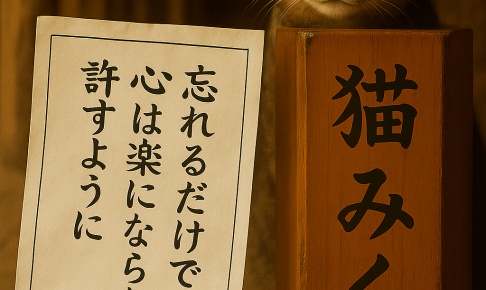 猫みく
忘れるだけで
心は楽になら
許すように